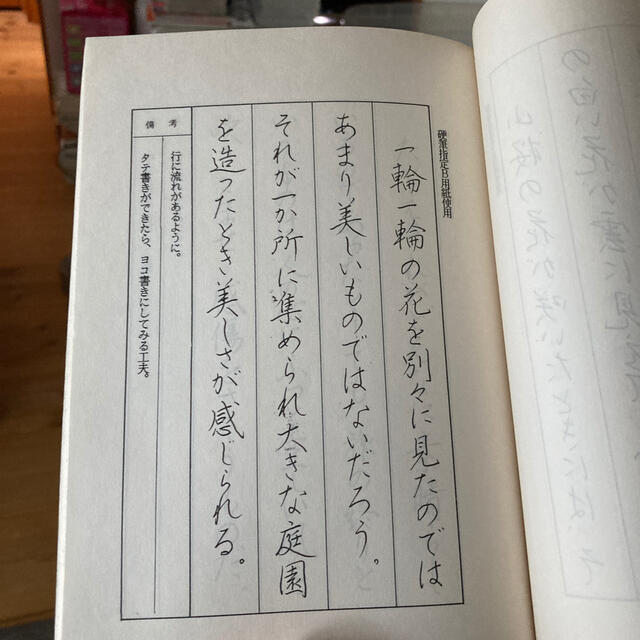 硬筆指定B用紙使用
一輪一輪の花を別々に見たのでは
あまり美しいものではないだろう。
それが一か所に集められ大きな庭園
を造ったとき美しさが感じられる。
備考
行に流れがあるように。
タテ書きができたら、ヨコ書きにしてみる工夫。